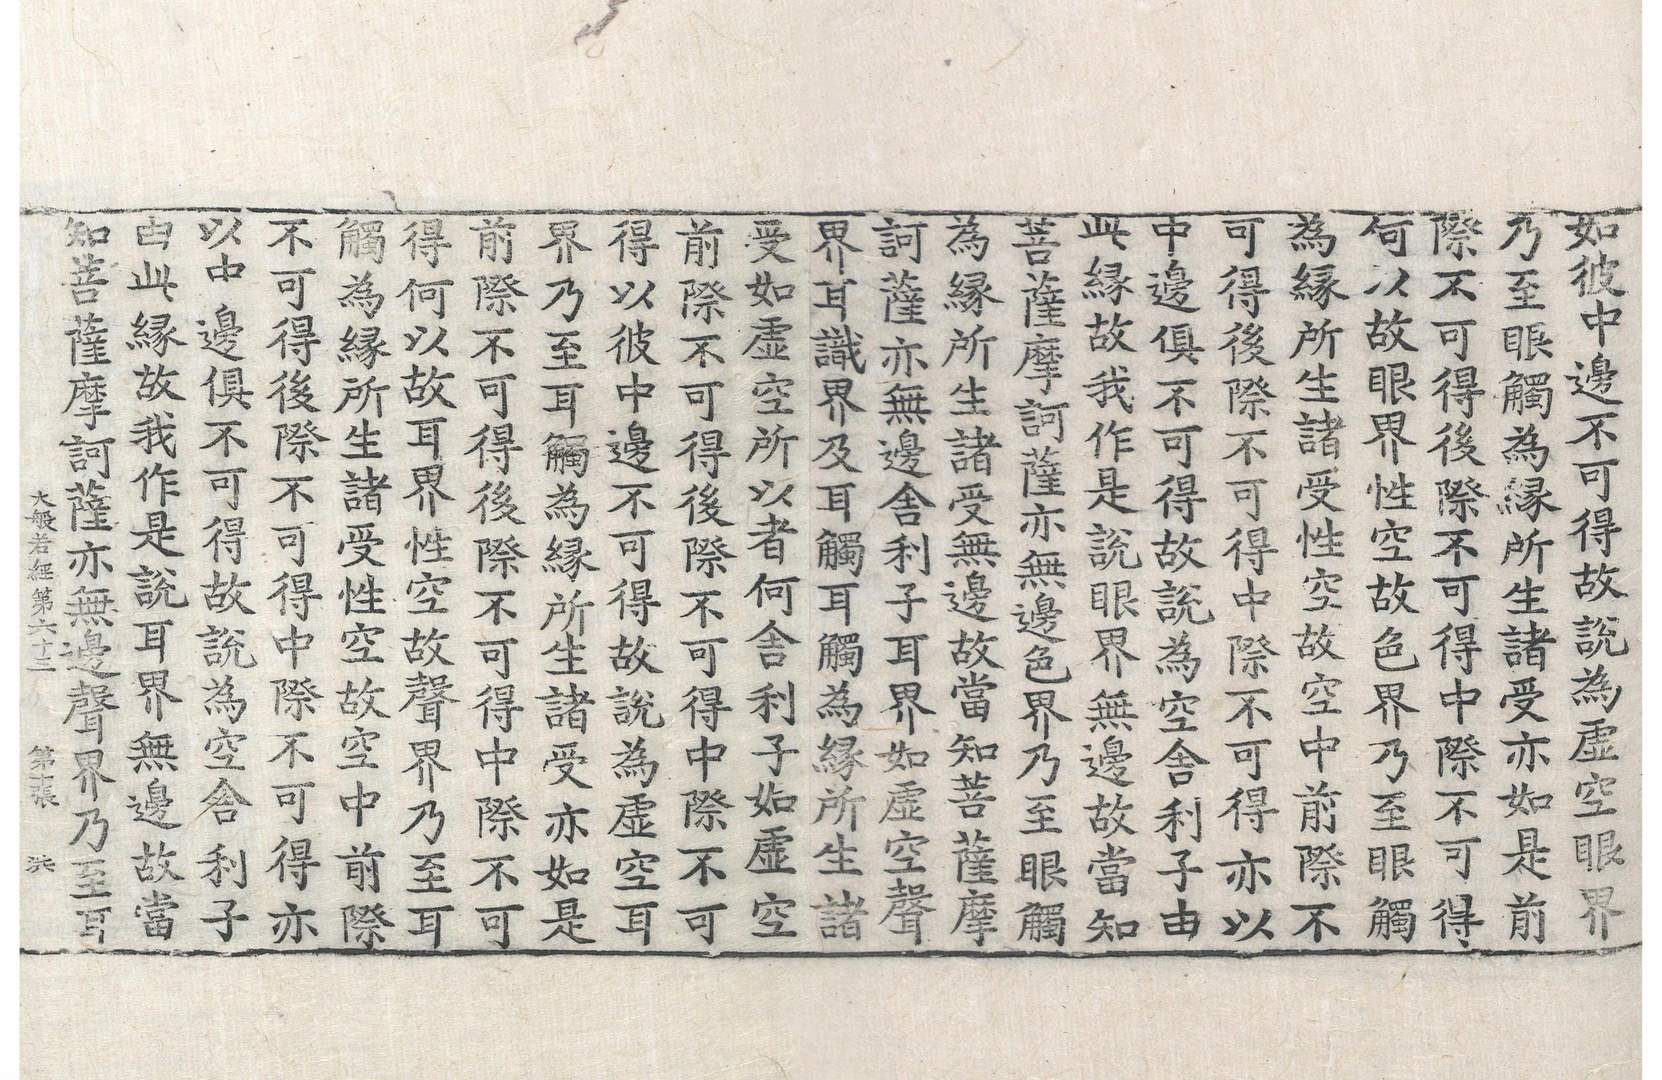 如彼中邊不可得故說為虛空眼界
乃至眼觸為緣所生諸受亦如是前
際不可得後際不可得中際不可得
何以故眼界性空故色界乃至眼觸
為緣所生諸受性空故空中前際不
可得後際不可得中際不可得亦以
中邊俱不可得故說為空舍利子由
此緣故我作是說眼界無邊故當知
菩薩摩訶薩亦無邊色界乃至眼觸
為緣所生諸受無邊故當知菩薩摩
訶薩亦無邊舍利子耳界如虛空聲
界耳識界及耳觸耳觸為緣所生諸
受如虛空所以者何舍利子如虛空
前際不可得後際不可得中際不可
得以彼中邊不可得故說為虛空耳
界乃至耳觸為緣所生諸受亦如是
前際不可得後際不可得中際不可
得何以故耳界性空故聲界乃至耳
觸為緣所生諸受性空故空中前際
不可得後際不可得中際不可得亦
以中邊俱不可得故說為空舍利子
由此緣故我作是說耳界無邊故當
知菩薩摩訶薩亦無邊聲界乃至耳
大般若經第六十三 第十張